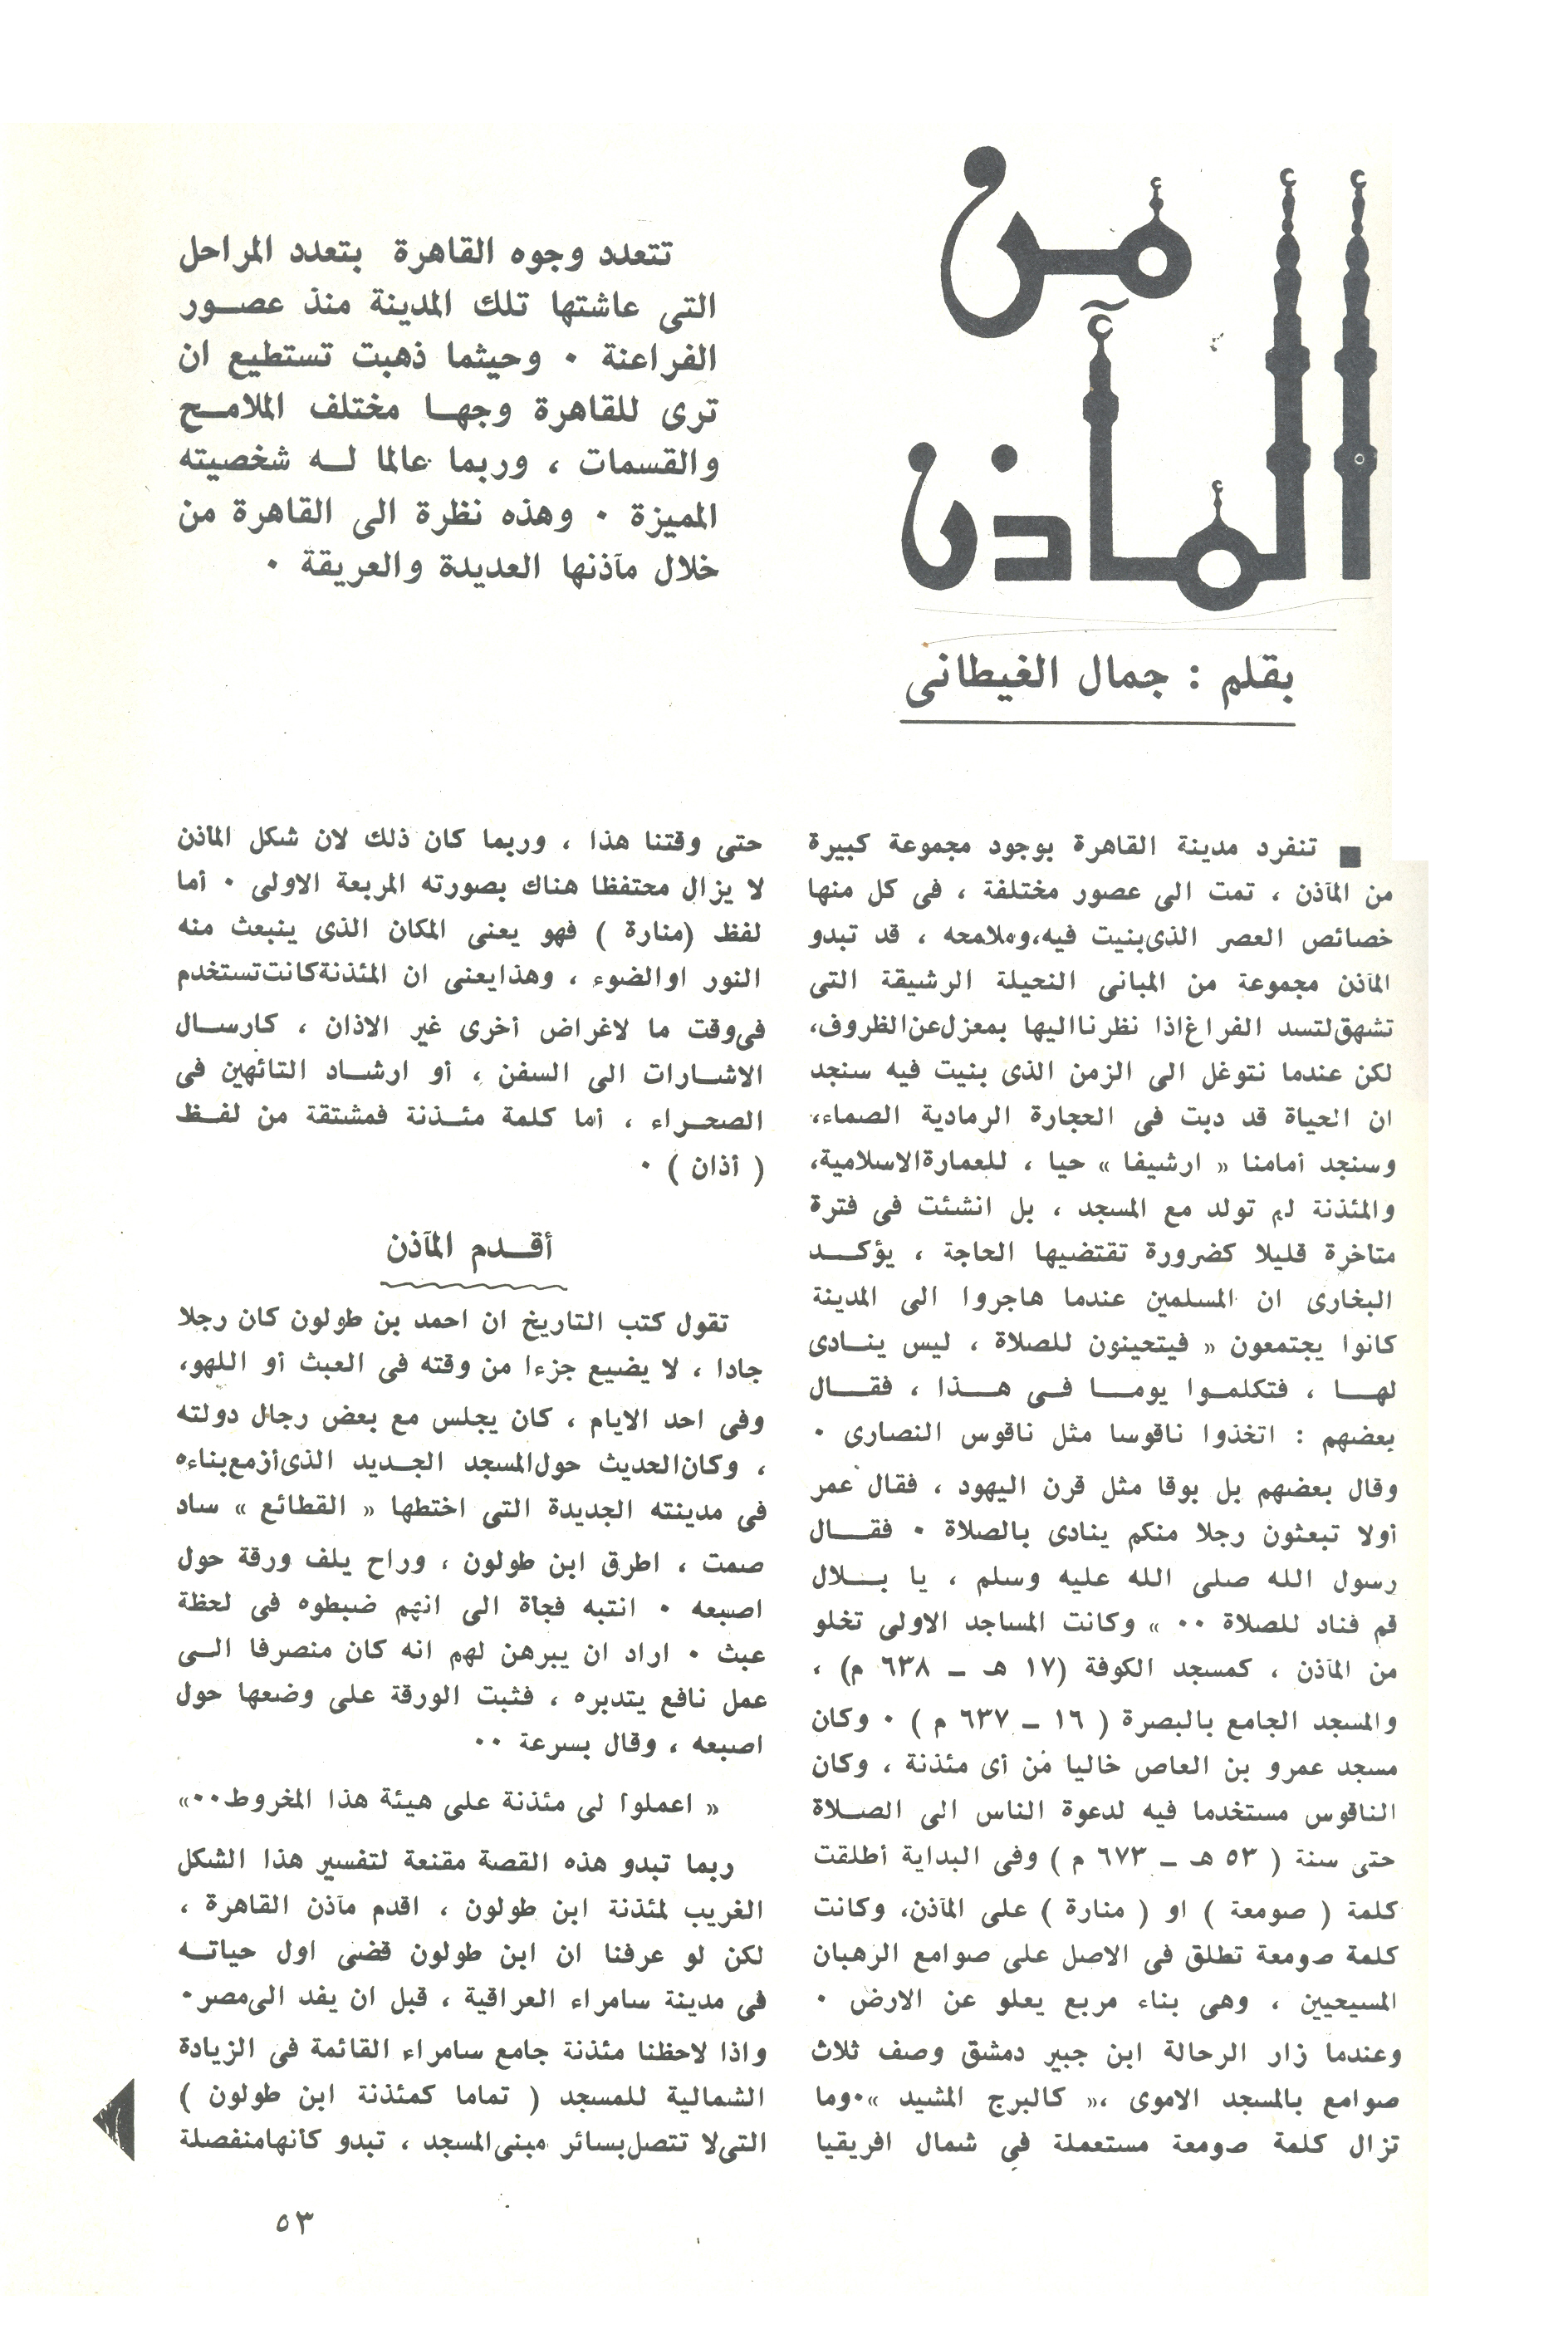 من
المآذن
بقلم : جمال الغيطانى
تتعدد وجوه القاهرة بتعدد المراحل
التى عاشتها تلك المدينة منذ عصور
الفراعنة ٠ وحيثما ذهبت تستطيع ان
ترى للقاهرة وجها مختلف الملامح
والقسمات ، وربما عالما له شخصيته
المميزة ٠ وهذه نظرة الى القاهرة من
خلال مآذنها العديدة والعريقة ٠
■ تنفرد مدينة القاهرة بوجود مجموعة كبيرة
من المآذن ، تمت الى عصور مختلفة ، فى كل منها
خصائص العصر الذى بنيت فيه، وملامحه ، قد تبدو
المآذن مجموعة من المبانى النحيلة الرشيقة التى
تشهق لتسد الفراغ اذا نظرنا اليها بمعزل عن الظروف،
لكن عندما نتوغل الى الزمن الذى بنيت فيه سنجد
ان الحياة قد دبت فى الحجارة الرمادية الصماء،
وسنجد أمامنا « ارشيفا » حيا ، للعمارة الاسلامية،
والمئذنة لم تولد مع المسجد ، بل انشئت فى فترة
متاخرة قليلا كضرورة تقتضيها الحاجة ، يؤكد
البخارى ان المسلمين عندما هاجروا الى المدينة
كانوا يجتمعون « فيتحينون للصلاة ، ليس ينادى
لها ، فتكلموا يوما فى هذا ، فقال
بعضهم : اتخذوا ناقوسا مثل ناقوس النصارى ٠
وقال بعضهم بل بوقا مثل قرن اليهود ، فقال عمر
أولا تبعثون رجلا منكم ينادى بالصلاة ٠ فقال
رسول الله صلى الله عليه وسلم ، يا بلال
قم فناد للصلاة ٠٠ » وكانت المساجد الاولى تخلو
من المآذن ، كمسجد الكوفة (١٧ هـ - ٦٣٨ م) ،
والمسجد الجامع بالبصرة ( ١٦ - ٦٣٧ م ) ٠ وكان
مسجد عمرو بن العاص خاليا من أى مئذنة ، وكان
الناقوس مستخدما فيه لدعوة الناس الى الصلاة
حتى سنة ( ٥٣ هـ - ٦٧٣ م ) وفى البداية أطلقت
كلمة ( صومعة ) او ( منارة ) على المآذن، وكانت
كلمة صومعة تطلق فى الاصل على صوامع الرهبان
المسيحيين ، وهى بناء مربع يعلو عن الارض ٠
وعندما زار الرحالة ابن جبير دمشق وصف ثلاث
صوامع بالمسجد الاموى ،« كالبرج المشيد »٠وما
تزال كلمة صومعة مستعملة فى شمال افريقيا
حتى وقتنا هذا ، وربما كان ذلك لان شكل المآذن
لا يزال محتفظا هناك بصورته المربعة الاولى ٠ أما
لفظ (منارة ) فهو يعنى المكان الذى ينبعث منه
النور او الضوء ، وهذا يعنى ان المئذنة كانت تستخدم
فى وقت ما لاغراض أخرى غير الاذان ، كارسال
الاشارات الى السفن ، أو ارشاد التائهين فى
الصحراء ، أما كلمة مئذنة فمشتقة من لفظ
( أذان ) ٠
أقدم المآذن
تقول كتب التاريخ ان احمد بن طولون كان رجلا
جادا ، لا يضيع جزءا من وقته فى العبث أو اللهو،
وفى احد الايام ، كان يجلس مع بعض رجال دولته
، وكان الحديث حول المسجد الجديد الذى أزمع بناءه
فى مدينته الجديدة التى اختطها « القطائع » ساد
صمت ، اطرق ابن طولون ، وراح يلف ورقة حول
اصبعه ٠ انتبه فجاة الى انهم ضبطوه فى لحظة
عبث ٠ اراد ان يبرهن لهم انه كان منصرفا الى
عمل نافع يتدبره ، فثبت الورقة على وضعها حول
اصبعه ، وقال بسرعة ٠٠
« اعملوا لى مئذنة على هيئة هذا المخروط٠٠»
ربما تبدو هذه القصة مقنعة لتفسير هذا الشكل
الغريب لمئذنة ابن طولون ، اقدم مآذن القاهرة ،
لكن لو عرفنا ان ابن طولون قضى اول حياته
فى مدينة سامراء العراقية ، قبل ان يفد الى مصر٠
واذا لاحظنا مئذنة جامع سامراء القائمة فى الزيادة
الشمالية للمسجد ( تماما كمئذنة ابن طولون )
التى لا تتصل بسائر مبنى المسجد ، تبدو كأنها منفصلة
٥٣